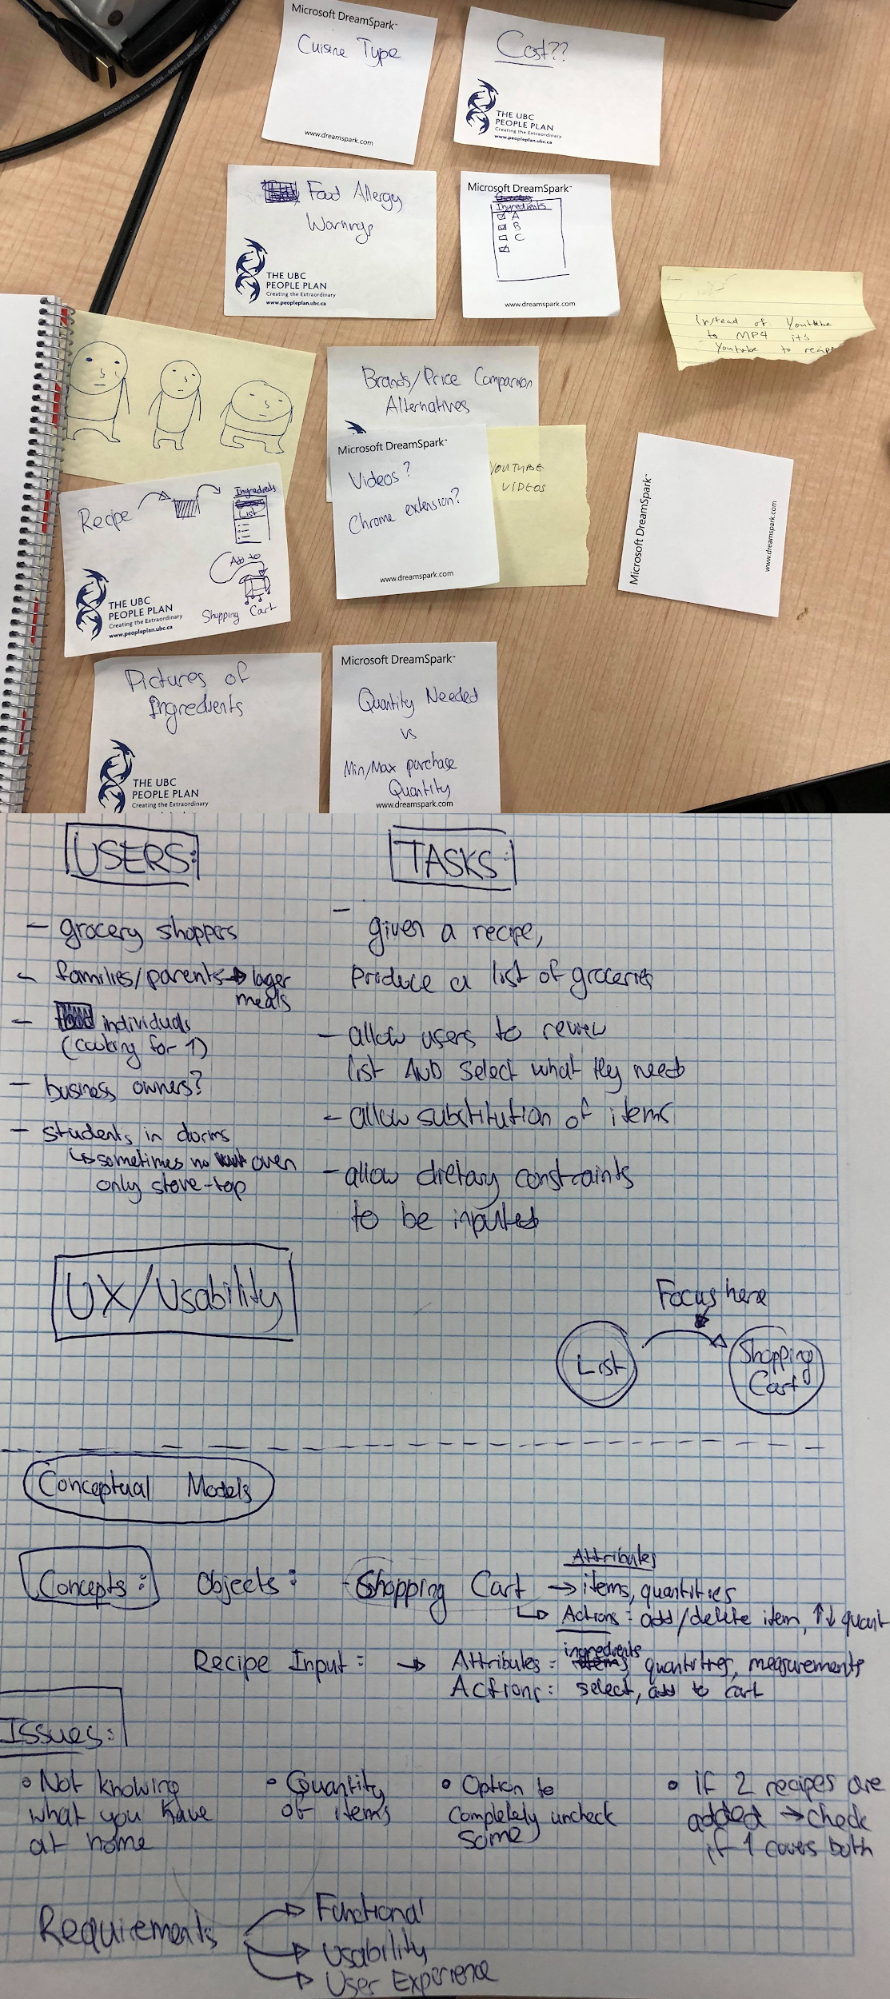 Microsoft DreamSpark™
Cuisine Type
www.dreamspark.com
Cost??
THE UBC
PEOPLE PLAN
Creating the Extraordinary
www.peopleplan.ubc.ca
Food Allergy
Warnings
THE UBC
PEOPLE PLAN
Creating the Extraordinary
www.peopleplan.ubc.ca
Microsoft DreamSpark™
Ingredients
A
B
C
www.dreamspark.com
Instead of Youtube
to MP4 it's
Youtube to
Brands/Price Comparison
Alternatives
Microsoft DreamSpark™
Videos?
Chrome extension?
www.dreamspark.com
YOUTUBE
VIDEOS
Microsoft DreamSpark™
www.dreamspark.com
Recipe
Ingredients
List
Add to
Shopping Cart
THE UBC
PEOPLE PLAN
Creating the Extraordinary
www.peopleplan.ubc.ca
Pictures of
Ingredients
THE UBC
PEOPLE PLAN
Creating the Extraordinary
Microsoft DreamSpark™
Quantity Needed
vs
Min/Max purchase
Quantity
www.dreamspark.com
USERS:
- grocery shoppers
- families/parents → larger
meals
- individuals
(cooking for 1)
- business owners?
- students in dorms
↳ sometimes no oven
only stove-top
TASKS:
- given a recipe,
produce a list of groceries
- allow users to review
list AND select what they need
- allow substitution of items
- allow dietary constraints
to be inputted
UX/Usability
Focus here
List
Shopping
Cart
Conceptual Models
Concepts:
Objects:
- Shopping Cart
Attributes
→ items, quantities
↳ Actions: add/delete item, ↑↓ quant
Recipe Input: → Attributes: ingredients quantities, measurements
Actions: select, add to cart
Issues:
• Not knowing
what you have
at home
• Quantity
of items
• Option to
completely uncheck
some
• if 2 recipes are
added → check
if 1 covers both
Requirements
Functional
Usability
User Experience